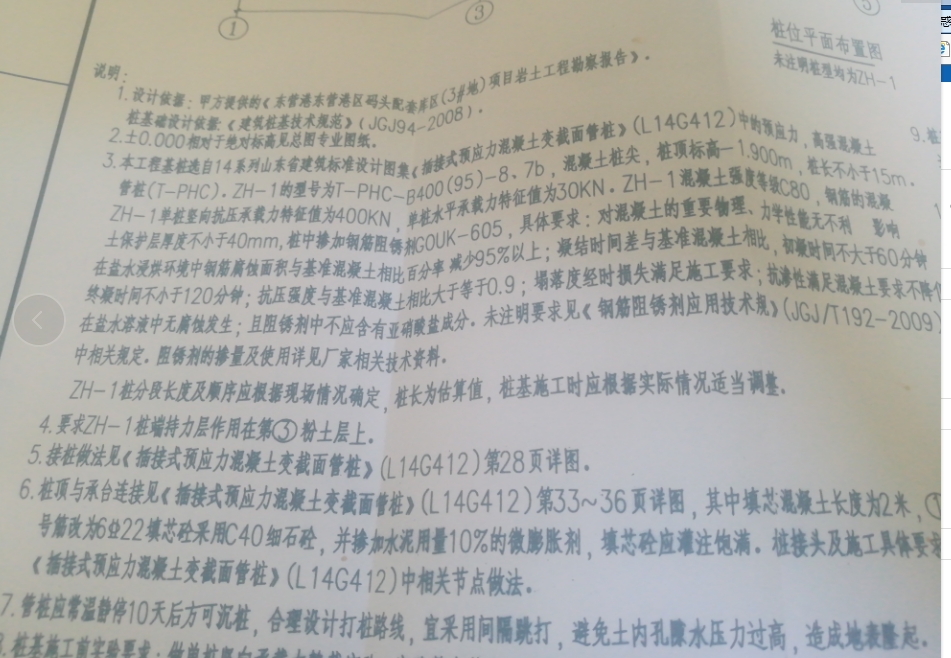 ①
③
5
桩位平面布置图
未注明桩型均为ZH-1
说明：
1.设计依据：甲方提供的《东营港东营港区码头配套库区(3#地)项目岩土工程勘察报告》.
桩基础设计依据《建筑桩基技术规范》(JGJ94-2008).
2.±0.000相对于绝对标高见总图专业图纸.
3.本工程基桩选自14系列山东省建筑标准设计图集《插接式预应力混凝土变截面管桩》(L14G412)中的预应力，高强混凝土
管桩(T-PHC).ZH-1的型号为T-PHC-B400(95)-8、7b，混凝土桩尖，桩顶标高-1.900m，桩长不小于15m.
ZH-1单桩竖向抗压承载力特征值为400KN，单桩水平承载力特征值为30KN.ZH-1混凝土强度等级C80，钢筋的混凝
土保护层厚度不小于40mm,桩中掺加钢筋阻锈剂GOUK-605，具体要求：对混凝土的重要物理、力学性能无不利 影响
在盐水浸烘环境中钢筋腐蚀面积与基准混凝土相比百分率 减少95%以上；凝结时间差与基准混凝土相比，初凝时间不大于60分钟
终凝时间不小于120分钟；抗压强度与基准混凝土相比大于等于0.9；塌落度经时损失满足施工要求；抗渗性满足混凝土要求不降
在盐水溶液中无腐蚀发生；且阻锈剂中不应含有亚硝酸盐成分.未注明要求见《钢筋阻锈剂应用技术规》(JGJ/T192-2009)
中相关规定.阻锈剂的掺量及使用详见厂家相关技术资料.
ZH-1桩分段长度及顺序应根据现场情况确定，桩长为估算值，桩基施工时应根据实际情况适当调整.
4.要求ZH-1桩端持力层作用在第③粉土层上.
5.接桩做法见《插接式预应力混凝土变截面管桩》(L14G412)第28页详图.
6.桩顶与承台连接见《插接式预应力混凝土变截面管桩》(L14G412)第33~36页详图，其中填芯混凝土长度为2米，①
号筋改为6Φ22填芯砼采用C40细石砼，并掺加水泥用量10%的微膨胀剂，填芯砼应灌注饱满.桩接头及施工具体要求
《插接式预应力混凝土变截面管桩》(L14G412)中相关节点做法.
7.管桩应常温静停10天后方可沉桩，合理设计打桩路线，宜采用间隔跳打，避免土内孔隙水压力过高，造成地表隆起.
桩基施工前实验要求：
9.桩